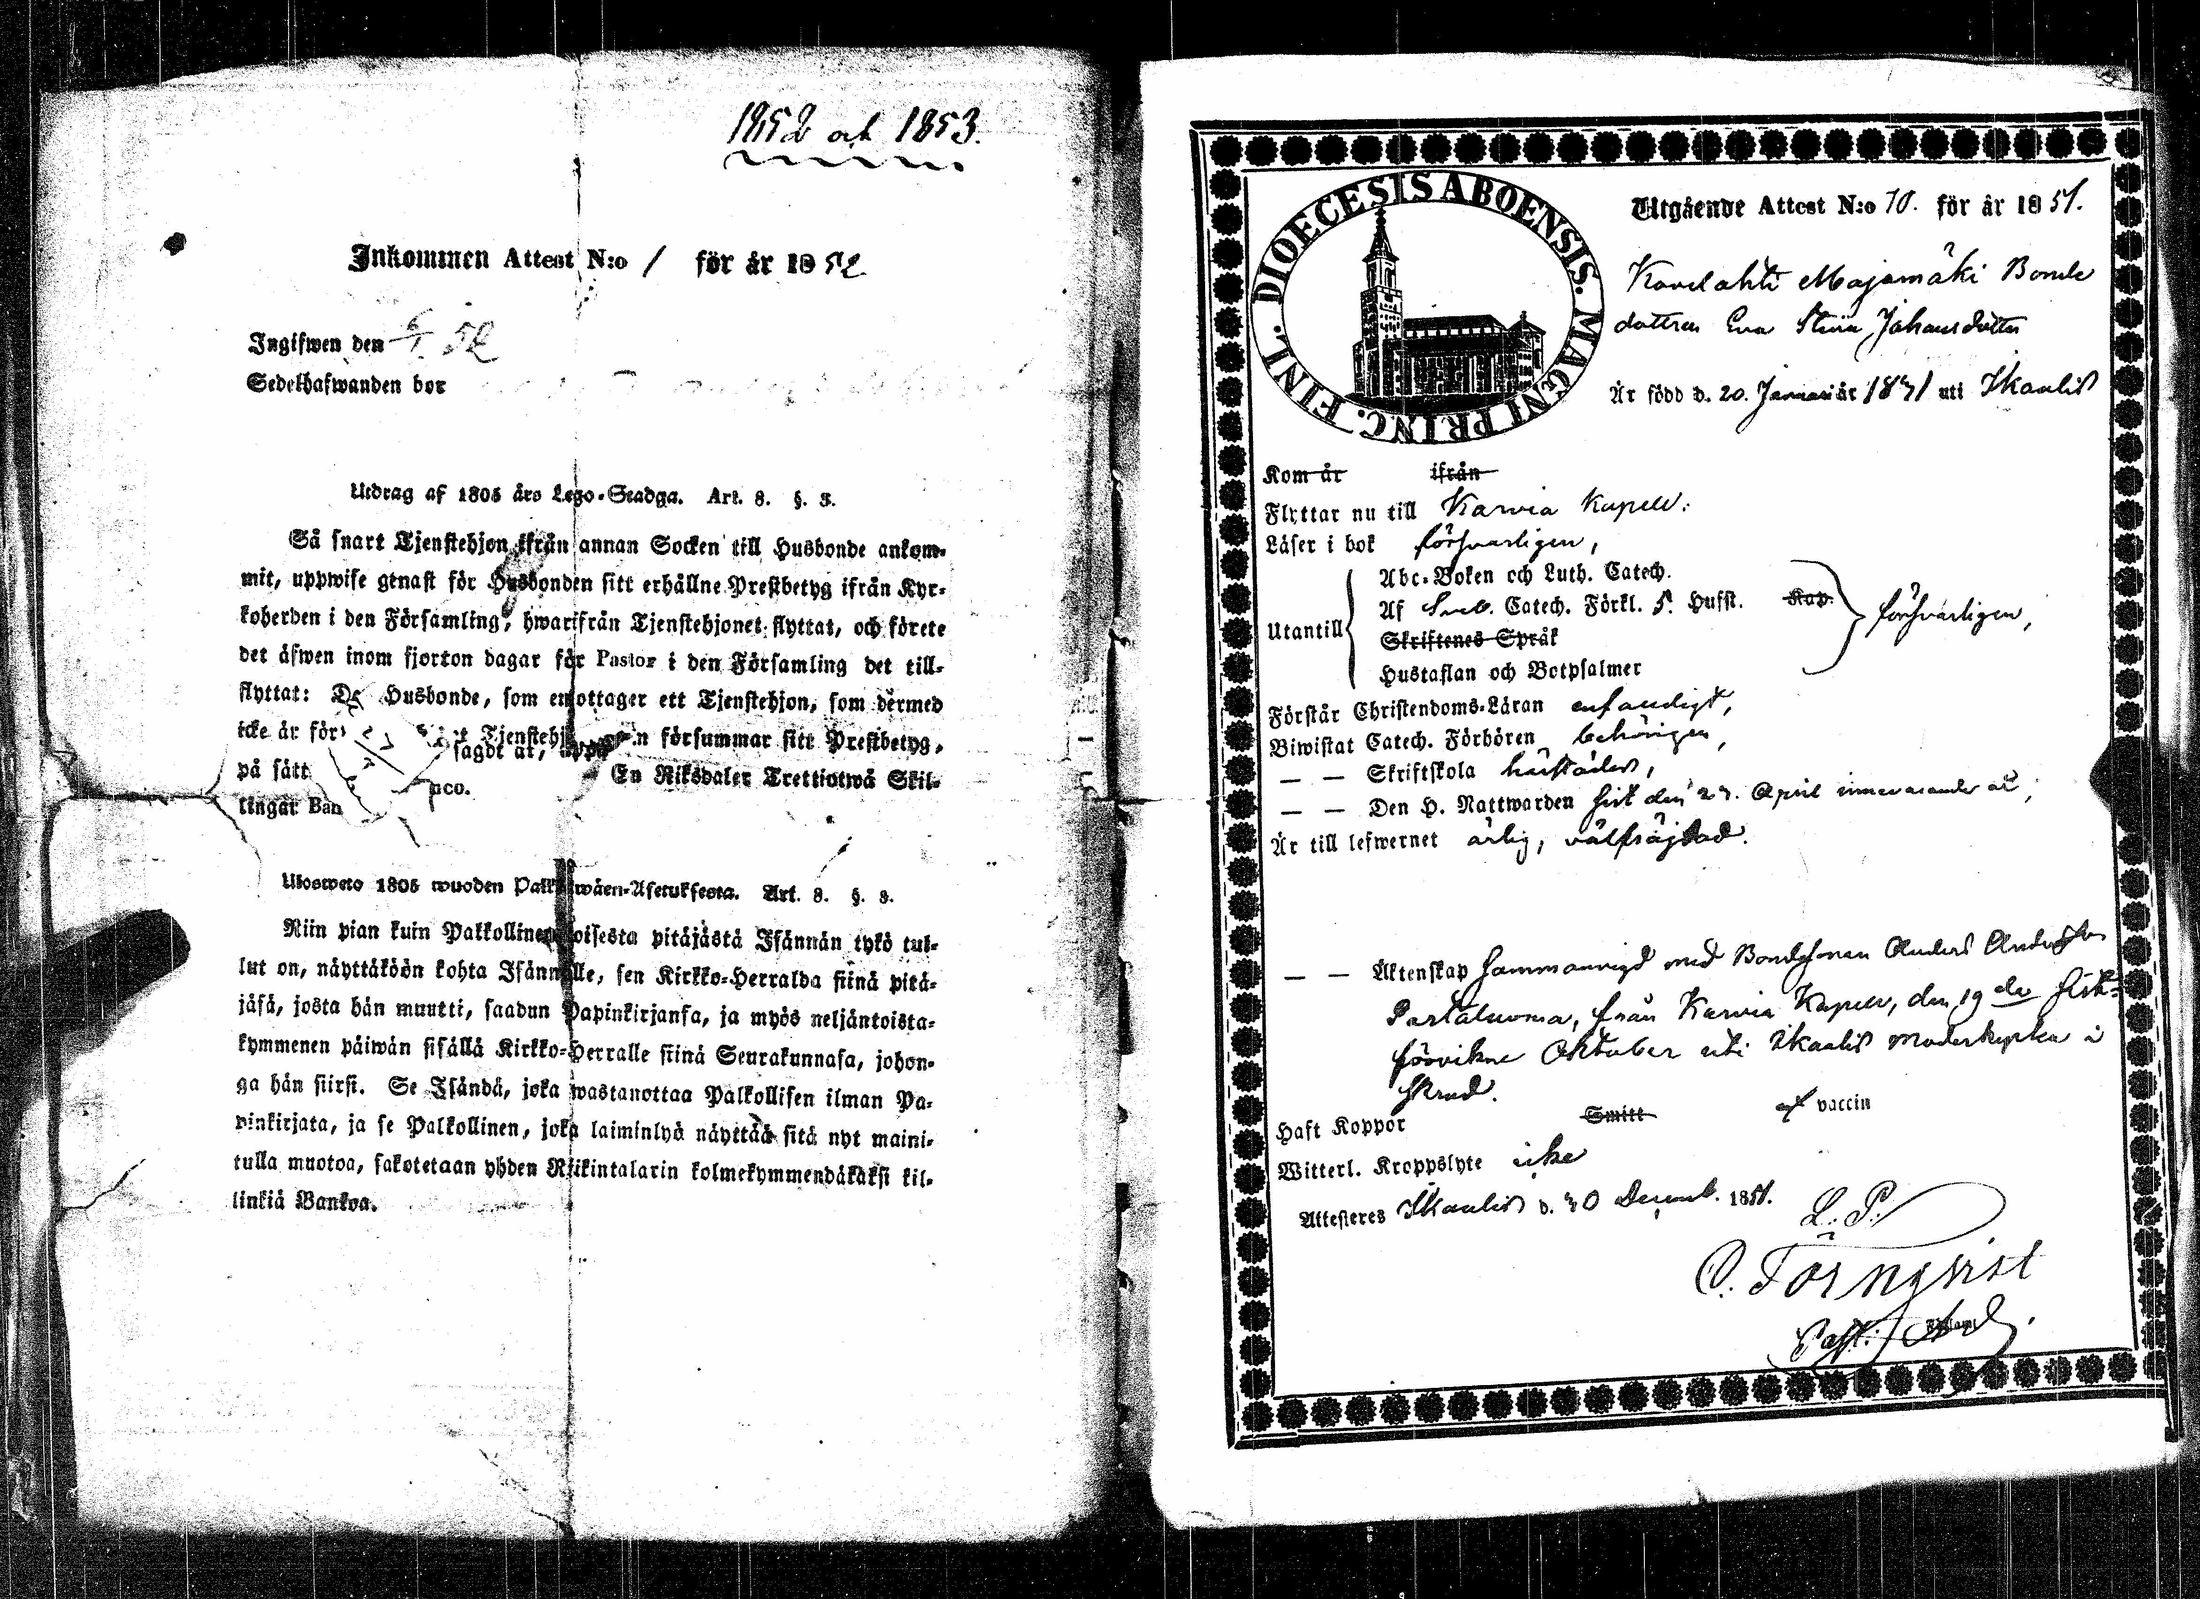 1852 och 1853.
Inkommen Attest N:o 1 för år 1852
Ingifwen den 6/1 52
Sedelhafwanden bor
Utdrag af 1805 års Lego-Stadga. Art. 8. §. 3.
Så snart Tjenstehjon ifrån annan Socken till Husbonde ankom-
mit, uppwise genast för Husbonden sitt erhållne Prestbetyg ifrån Kyr-
koherden i den Församling, hwarifrån Tjenstehjonet flyttat, och förete
det äfwen inom fjorton dagar för Pastor i den Församling det till-
flyttat: Husbonde, som emottager ett Tjenstehjon, som dermed
icke är för Tjenstehj n försummar sitt Prestbetyg,
på sätt sagdt är, En Riksdaler Trettiotwå Skil-
lingar Ban nco.
Ulosweto 1805 wuoden Palkkawäen-Asetuksesta. Art. 8. §. 3.
Niin pian kuin Palkollinen toisesta pitäjästä Isännän tykö tul-
lut on, näyttäköön kohta Isännälle, sen Kirkko-Herralda siinä pitä-
jäsä, josta hän muutti, saadun Papinkirjansa, ja myös neljäntoista-
kymmenen päiwän sisällä Kirkko-Herralle siinä Seurakunnasa, johon-
ga hän siirsi. Se Isändä, joka wastanottaa Palkollisen ilman Pa-
pinkirjata, ja se Palkollinen, joka laiminlyö näyttää sitä nyt maini-
tulla muotoa, sakotetaan yhden Riikintalarin kolmekymmendäkaksi kil-
linkiä Bankoa.
DIOECESIS ABOENSIS. MAGNI PRINC. FINL.
Utgående Attest N:o 70. för år 1851.
Kovelahti Majamäki Bonde
dottren Eva Stina Johansdotter
Är född d. 20. Januari år 1831 uti Ikaalis
Kom år ifrån
Flyttar nu till Karvia Kapell.
Läser i bok försvarligen,
Abc-Boken och Luth. Catech.
Af Sveb. Catech. Förkl. 5. Hufst. Kap.
Utantill försvarligen,
Skriftenes Språk
Hustaflan och Botpsalmer
Förstår Christendoms-Läran enfaldigt,
Biwistat Catech. Förhören behörigen,
— — Skriftskola härstädes,
— — Den H. Nattwarden sist den 27. April innevarande år,
Är till lefwernet ärlig, välfräjdad.
— — Äktenskap sammanvigd med Bondesonen Anders Andersson
Partaluoma, från Karvia Kapell, den 19de sist-
förvikne Oktober uti Ikaalis moderkyrka i
skrud.
Haft Koppor Smitt af vaccin
Witterl. Kroppslyte icke
Attesteres Ikaalis d. 30 Decemb. 1851.
L. P.
O. Törnqvist